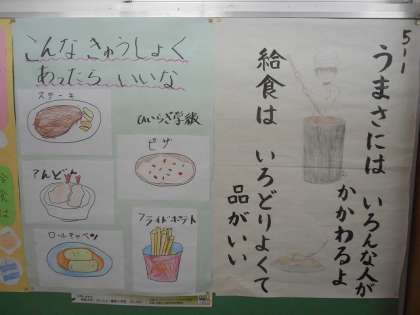 こんなきゅうしょく
あったらいいな
ひいらぎ学級
ステーキ
ピザ
てんどん
フライドポテト
ロールキャベツ
5-1
うまさには いろんな人が
かかわるよ
給食は いろどりよくて
品がいい